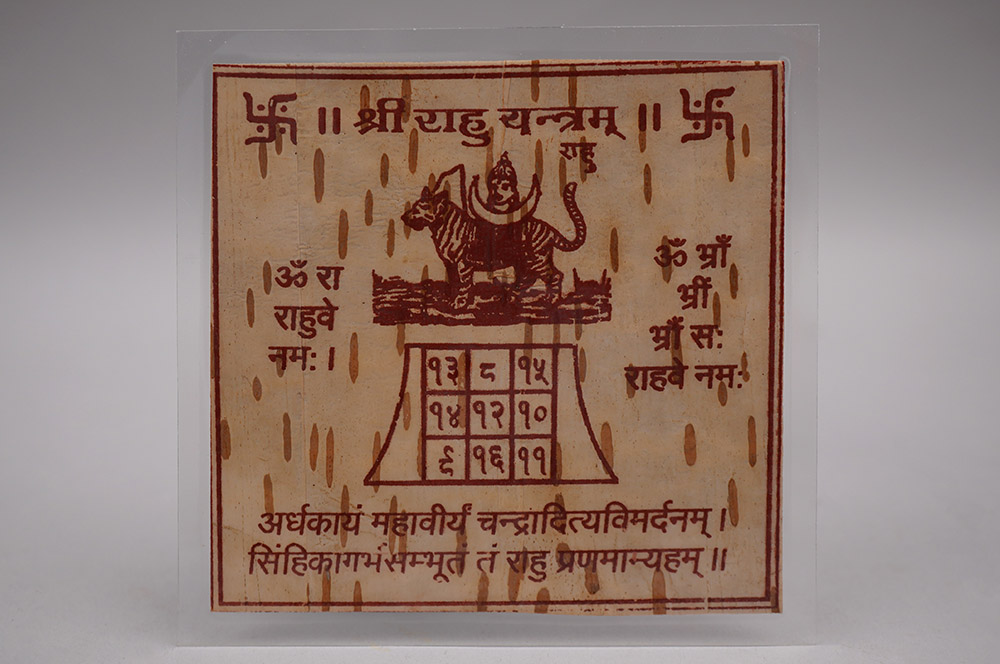 ॥ श्री राहु यन्त्रम् ॥
राहु
ॐ रा
राहुवे
नमः।
ॐ भ्राँ
भ्रीं
भ्राँ सः
राहवे नमः
१३ ८ १५
१४ १२ १०
९ १६ ११
अर्धकायं महावीर्यं चन्द्रादित्यविमर्दनम्।
सिंहिकागर्भसम्भूतं तं राहु प्रणमान्यहम्॥